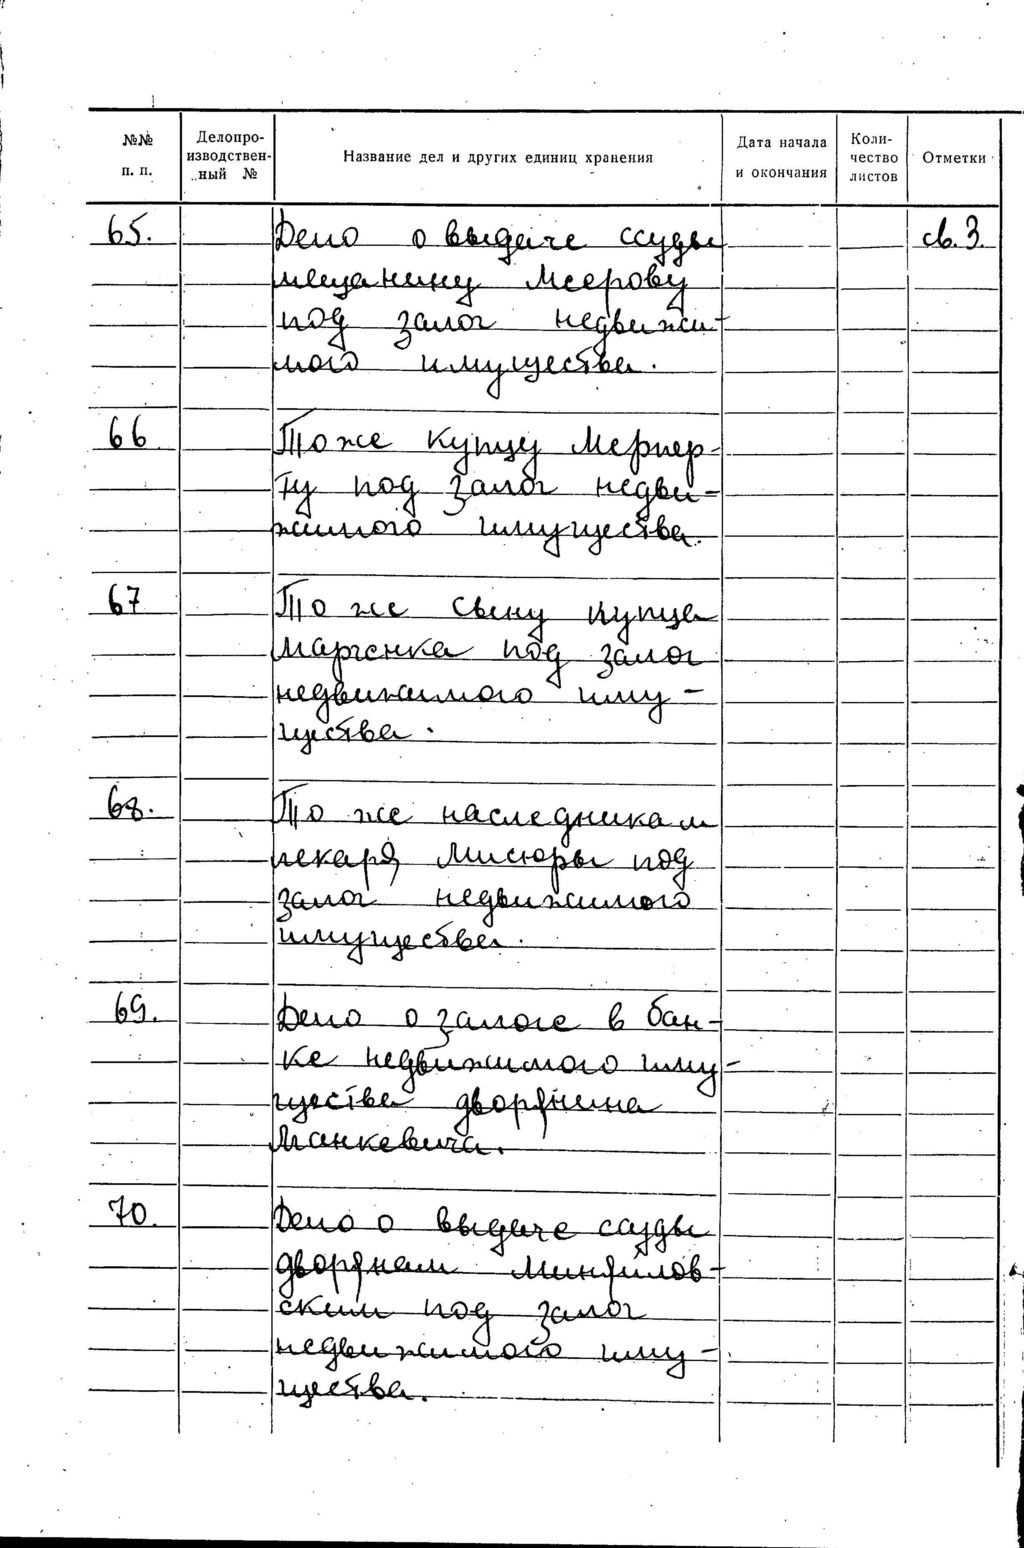 №№ п. п. Делопроизводствен-ный № Название дел и других единиц хранения Дата начала и окончания Коли-чество листов Отметки
65. Дело о выдаче ссуды св. 3.
мещанину Меерову
под залог недвижи-
мого имущества.
66 То же купцу Мерпер-
ту под залог недви-
жимого имущества.
67 То же сыну купца
Марченка под залог
недвижимого иму-
щества.
68. То же наследникам
пекаря Мисюры под
залог недвижимого
имущества.
69. Дело о залоге в бан-
ке недвижимого иму-
щества дворянина
Манкевича.
70. Дело о выдаче ссуды
дворянам Миняйлов-
ским под залог
недвижимого иму-
щества.